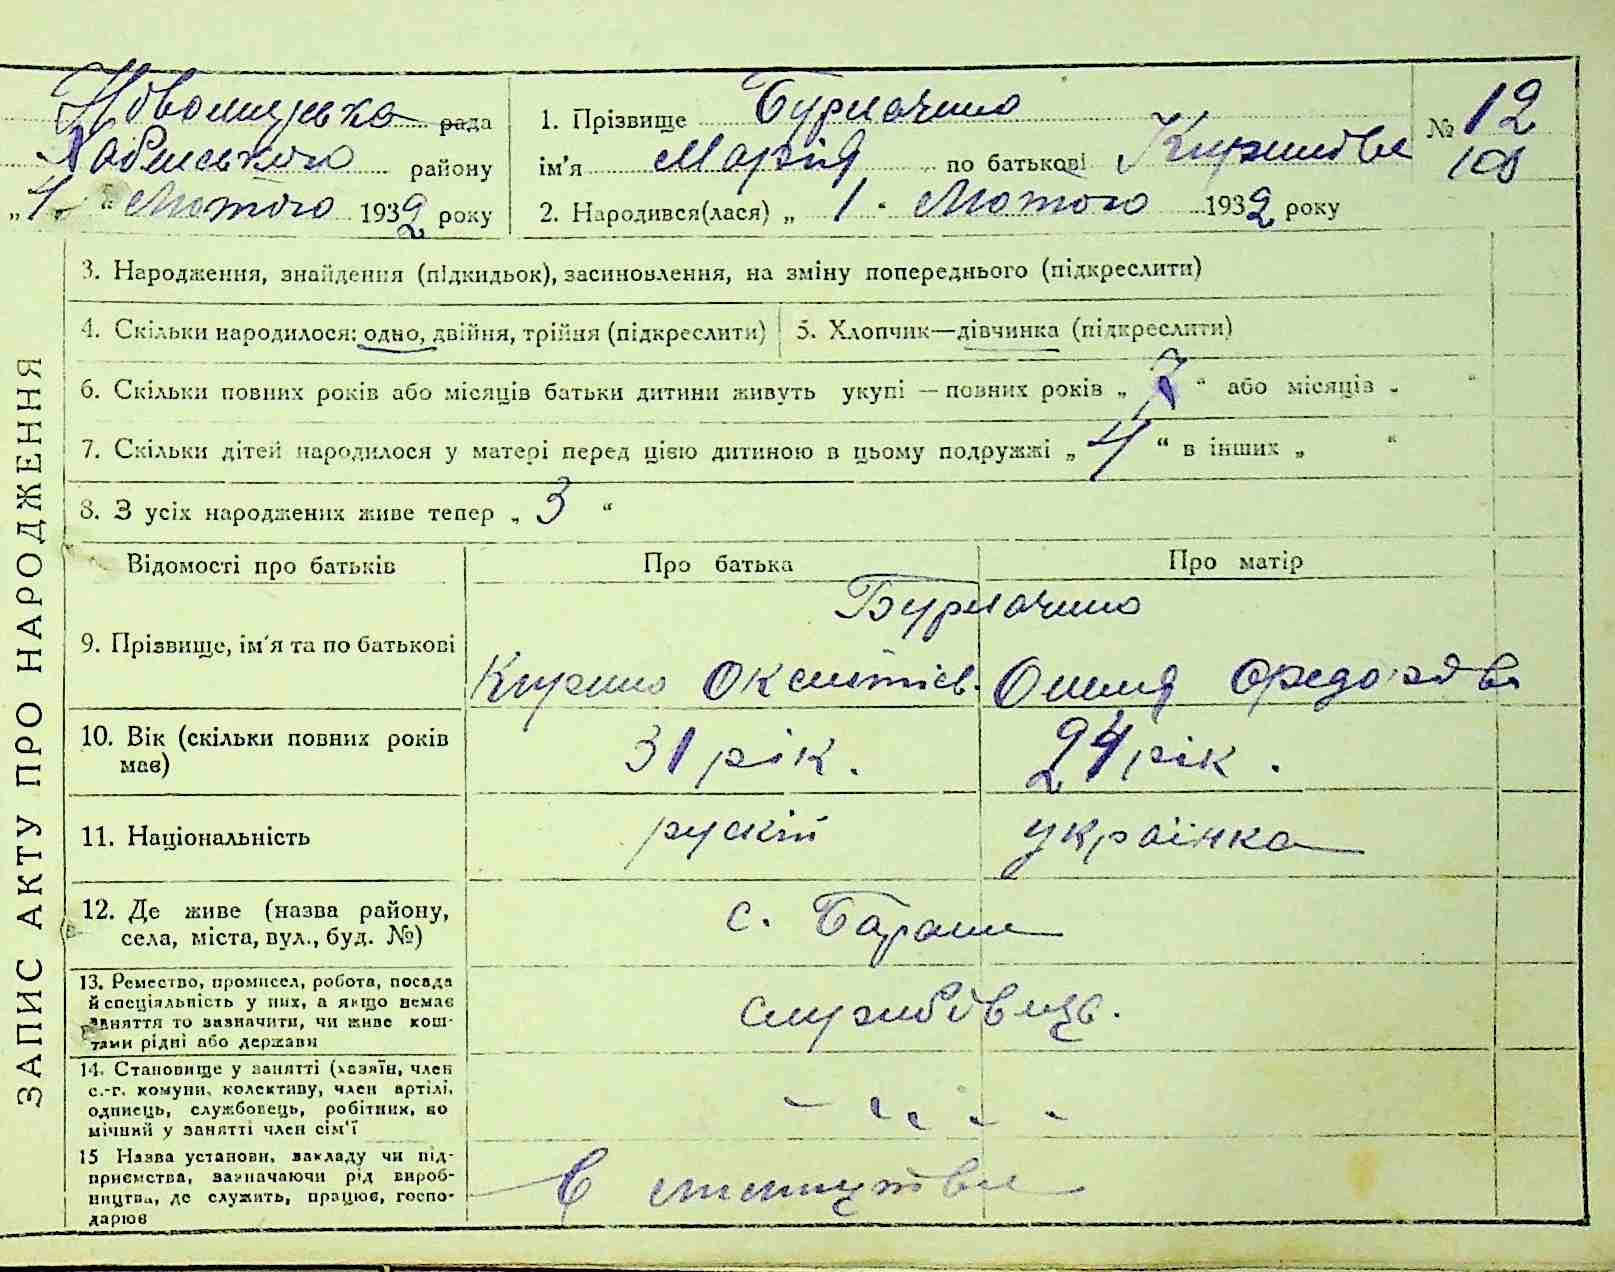 рада
1. Прізвище
№ 12
району
ім'я Марія по батькові
103
"4" Лютого 1932 року
2. Народився(лася) „ 1 . Лютого 1932 року
3. Народження, знайдення (підкидьок), засиновлення, на зміну попереднього (підкреслити)
4. Скільки народилося: одно, двійня, трійня (підкреслити)
5. Хлопчик—дівчинка (підкреслити)
6. Скільки повних років або місяців батьки дитини живуть укупі — повних років „ 7 “ або місяців „ “
7. Скільки дітей народилося у матері перед цією дитиною в цьому подружжі „ 4 “ в інших „ “
8. З усіх народжених живе тепер „ 3 “
ЗАПИС АКТУ ПРО НАРОДЖЕННЯ
Відомості про батьків
Про батька
Про матір
9. Прізвище, ім'я та по батькові
10. Вік (скільки повних років
має)
31 рік.
24 рік.
11. Національність
рускій
українка
12. Де живе (назва району,
села, міста, вул., буд. №)
с. Бараши
13. Ремество, промисел, робота, посада
й спеціяльність у них, а якщо немає
заняття то зазначити, чи живе кош-
тами рідні або держави
службовець.
14. Становище у занятті (хазяїн, член
с.-г. комуни, колективу, член артілі,
одписць, службовець, робітник, по
мічний у занятті член сім'ї
15 Назва установи, закладу чи під-
приємства, зазначаючи рід вироб-
ництва, де служить, працює, госпо-
дарює